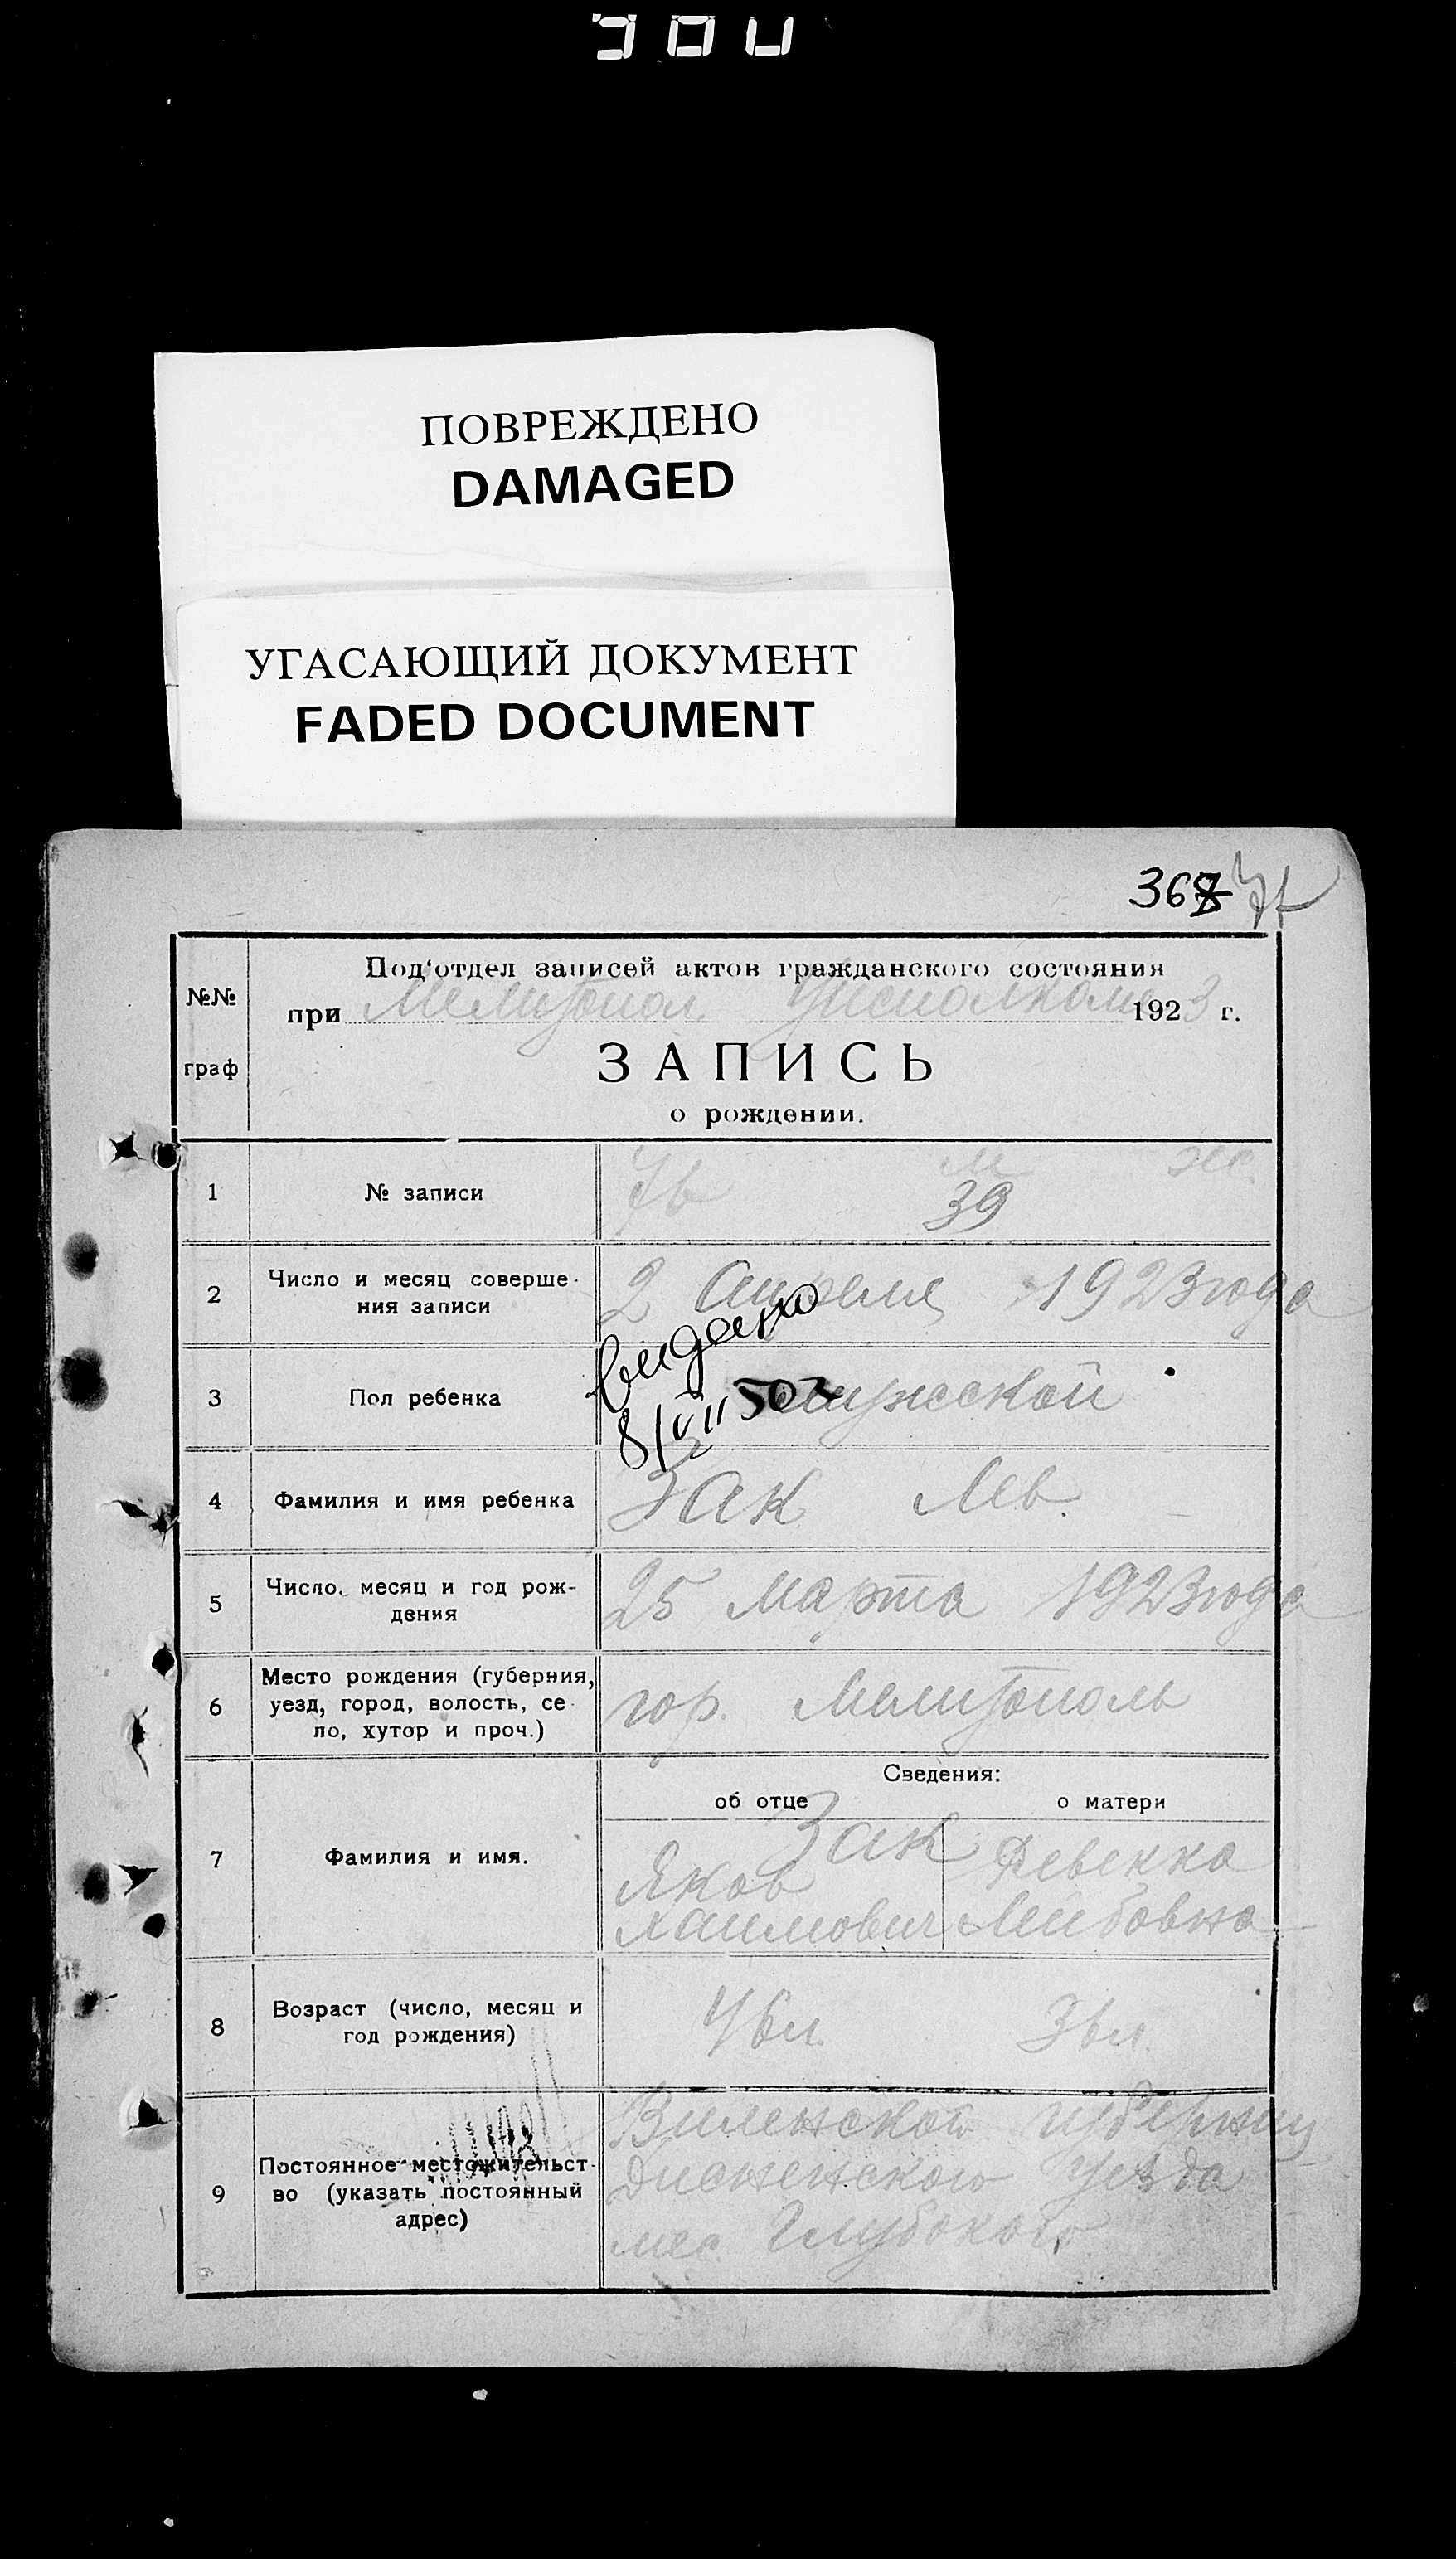 ПОВРЕЖДЕНО
DAMAGED
УГАСАЮЩИЙ ДОКУМЕНТ
FADED DOCUMENT
Под'отдел записей актов гражданского состояния
№№
при Мелитопол. Уисполкоме 1923 г.
граф
ЗАПИСЬ
о рождении.
1 № записи 39
2 Число и месяц соверше-
ния записи 2 Апреля 1923 года
видано
3 Пол ребенка мужской
4 Фамилия и имя ребенка Зак Лев.
5 Число, месяц и год рож-
дения 25 Марта 1923 года
6 Место рождения (губерния,
уезд, город, волость, се-
ло, хутор и проч.) гор. Мелитополь
Сведения:
об отце о матери
7 Фамилия и имя. Зак
Яков Ревекка
Хаимович Лейбовна
8 Возраст (число, месяц и
год рождения)
9 Постоянное местожительст-
во (указать постоянный
адрес)
Виленской губернии
Дисненского уезда
мес. Глубокого